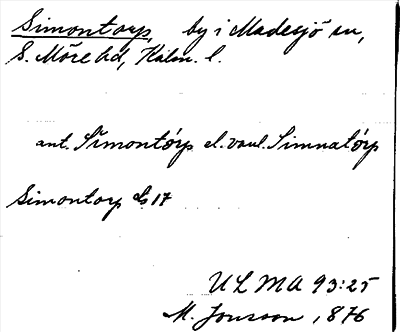 Simontorp, by i Madesjö sn,
S. Möre hd, Kalm. l.
ant. Simontórp el. vanl. Simnatórp
Simontorp 17
ULMA 93:25
M. Jonsson, 1876